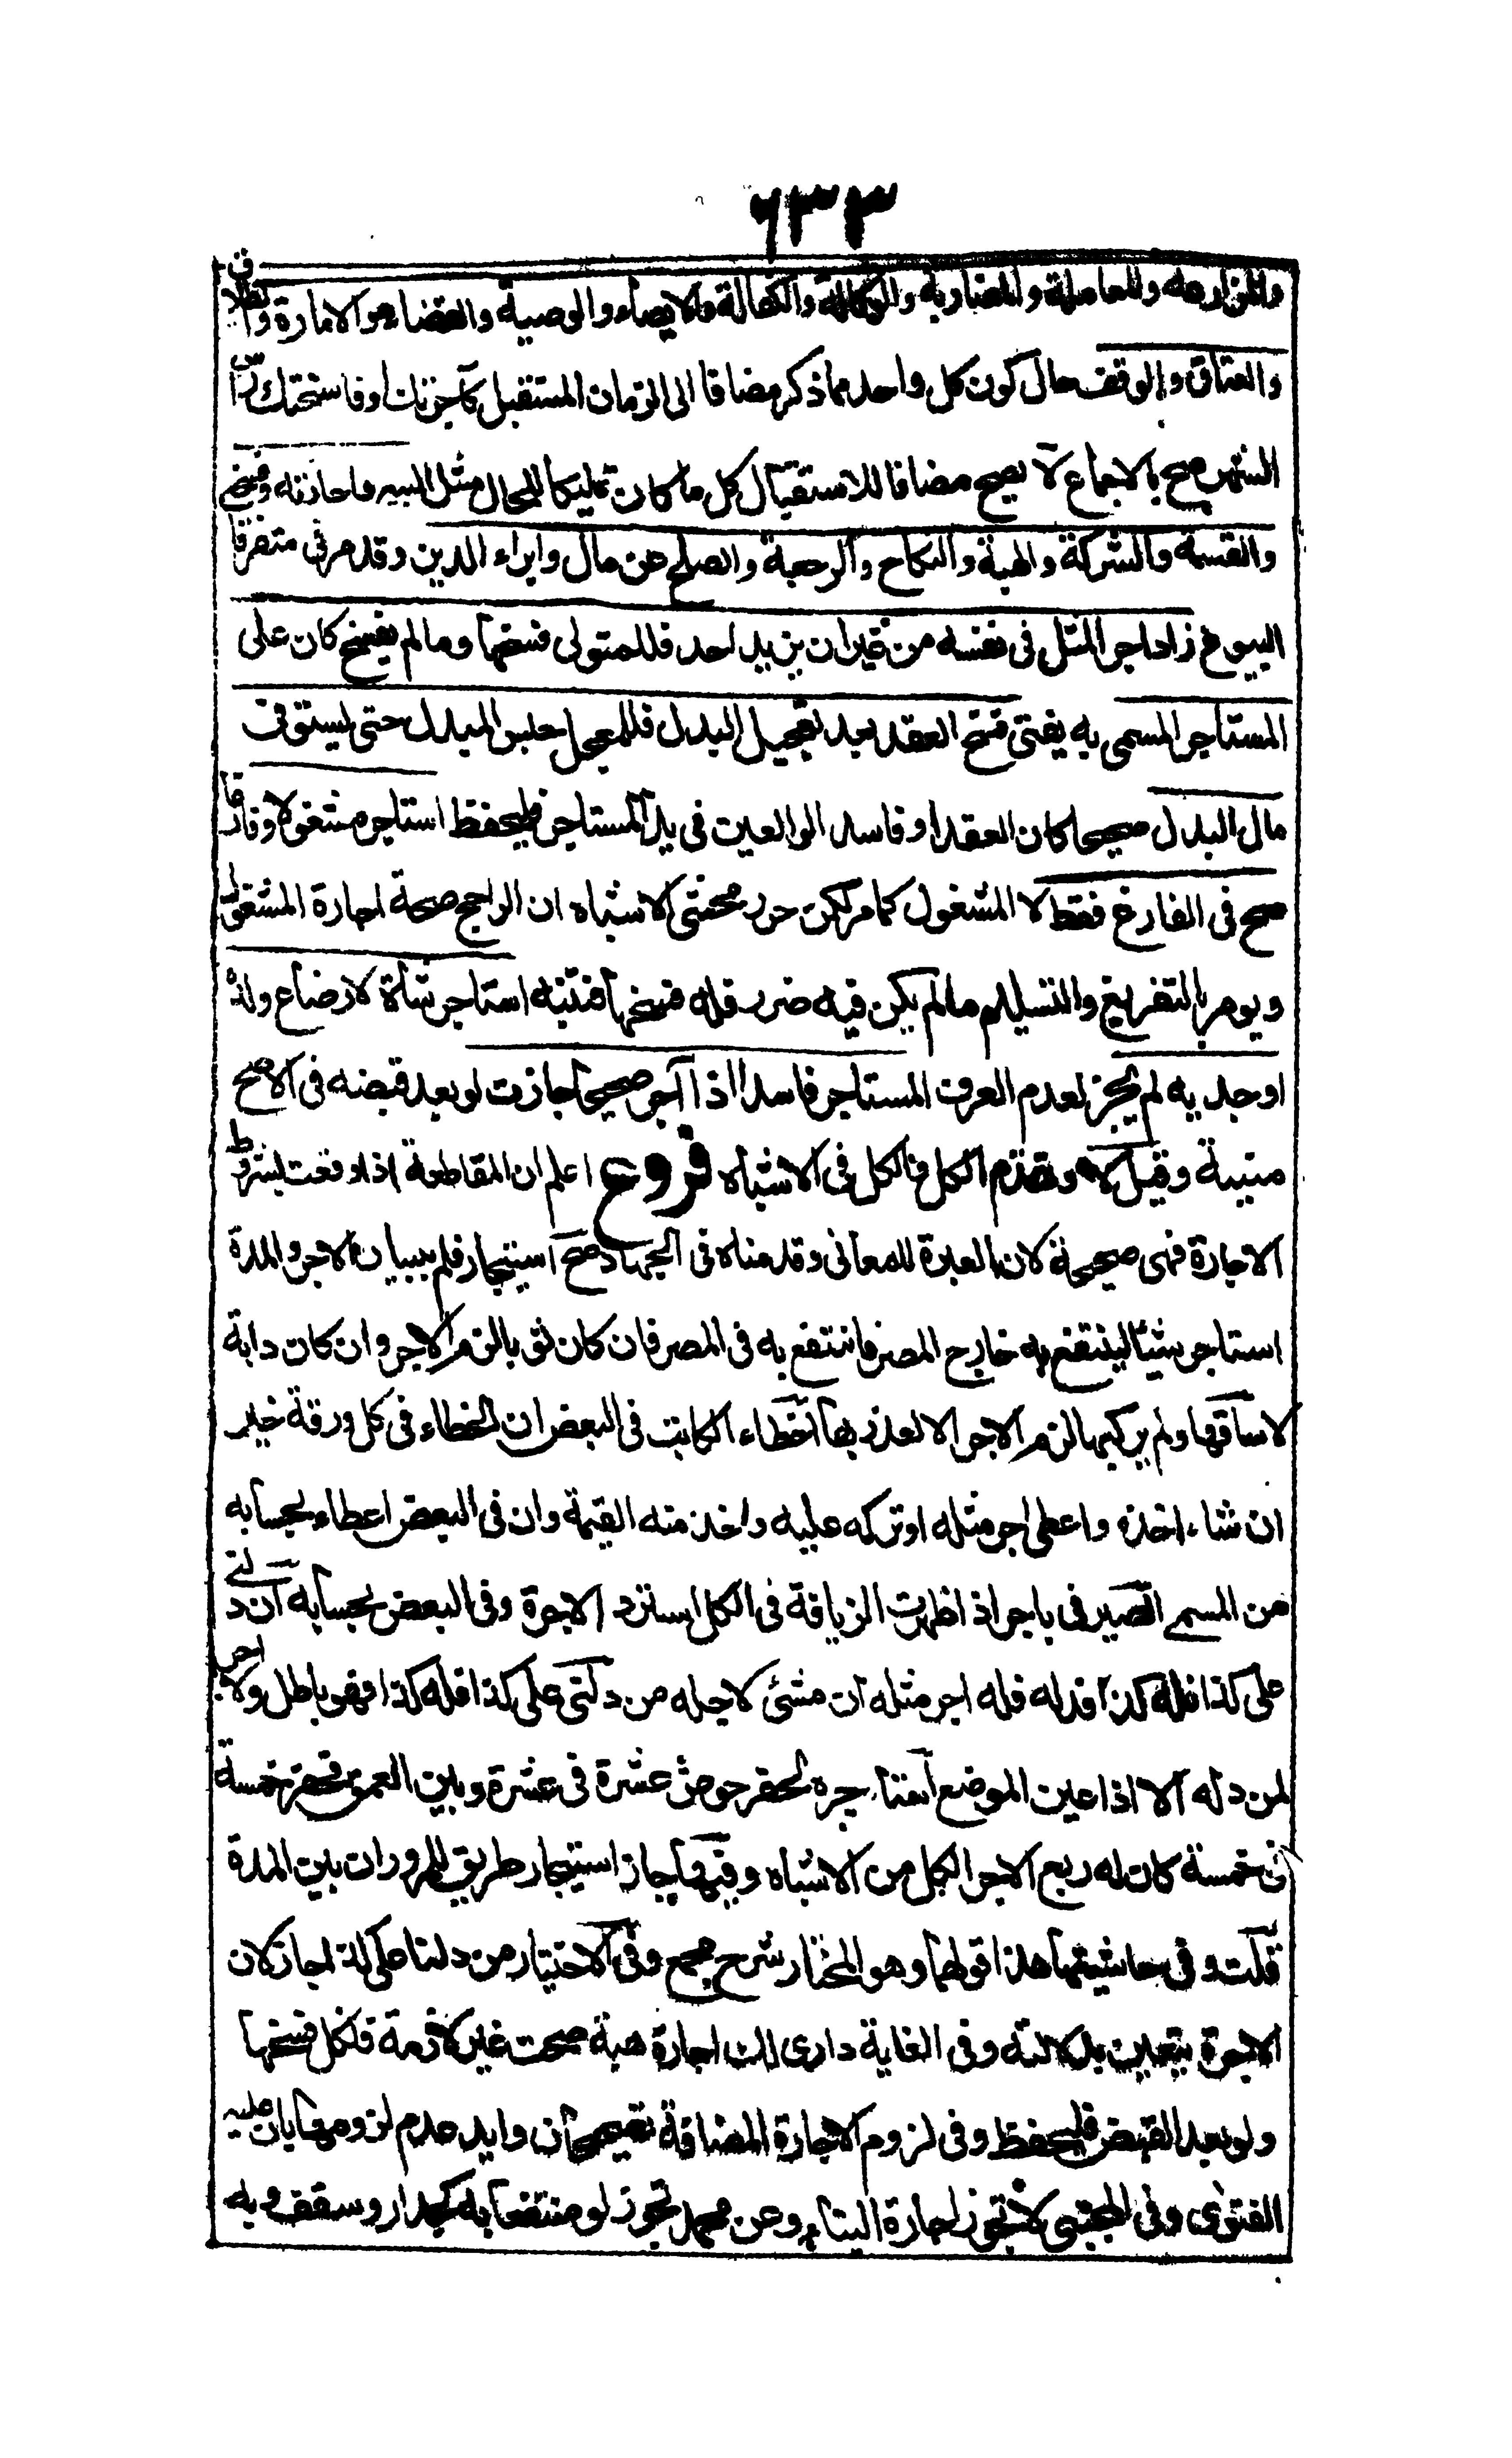 ٦٣٣
والمزارعة والمعاملة والمضاربة والوكالة والكفالة والايصاء والوصية والقضاء والامارة والطلاق
والعتاق والوقف حال كون كل واحد مما ذكر مضافا الى الزمان المستقبل كآجرتك او فاسختك راس
الشهر صح بالاجماع لا يصح مضافا للاستقبال كل ما كان تمليكا للحال مثل البيع واجازته وفسخه
والقسمة والشركة والهبة والنكاح والرجعة والصلح عن مال وابراء الدين وقد مر في متفرقات
البيوع زاد اجر المثل فى نفسه من غير ان يزيد احد فللمتولى فسخها وما لم يفسخ كان على
المستاجر المسمى به يفتى فسخ العقد بعد تعجيل البدل فللمعجل حبس المبدل حتى يستوفى
مال البدل صحيحا كان العقد او فاسدا لو العين فى يد المستاجر فليحفظ استاجر مشغولا وفارغا
صح فى الفارغ فقط لا المشغول كما مر لكن حرر محشى الاشباه ان الراجح صحة اجارة المشغول
ويومر بالتفريغ والتسليم ما لم يكن فيه ضرر فله فسخها فتنبه استاجر شاة لارضاع ولده
او جديه لم يجز لعدم العرف المستاجر فاسدا اذا آجر صحيحا جازت لو بعد قبضه فى الاصح
منية وقيل لا وتقدم الكل والكل فى الاشباه فروع اعلم ان المقاطعة اذا وقعت بشروط
الاجارة فهى صحيحة لان العبرة للمعانى وقدمناه فى الجهاد صح استيجار قلم ببيان الاجر والمدة
استاجر شيئا لينتفع به خارج المصر فانتفع به فى المصر فان كان ثوبا لزم الاجر وان كان دابة
لا ساقها ولم يركبها لزم الاجر الا لعذر بها اخطاء الكاتب فى البعض ان الخطاء فى كل ورقة خير
ان شاء اخذه واعطى اجر مثله او تركه عليه واخذ منه القيمة وان فى البعض اعطاه بحسابه
من المسمى الصيرفى باجر اذا ظهرت الزيافة فى الكل استرد الاجرة وفى البعض بحسابه ان دلنى
على كذا فله كذا فدله فله اجر مثله ان مشى لاجله من دلنى على كذا فله كذا فهو باطل ولا اجر
لمن دله الا اذا عين الموضع استاجره لحفر حوض عشرة فى عشرة وبين العمق فحفر خمسة
فى خمسة كان له ربع الاجر الكل من الاشباه وفيها جاز استيجار طريق للمرور ان بين المدة
قلت وفى حاشيتها هذا قولهما وهو المختار شرح مجمع وفى الاختيار من دلنا على كذا جاز لان
الاجرة يتعين بدلالته وفى الغاية دارى لك اجارة هبة صحت غير لازمة فلكل فسخها
ولو بعد القبض فليحفظ وفى لزوم الاجارة المضافة تصحيحان وايد عدم لزومها بان عليه
الفتوى وفى المجتبى لا تجوز اجارة البناء وعن محمد تجوز لو منتفعا به كجدار وسقف وبه